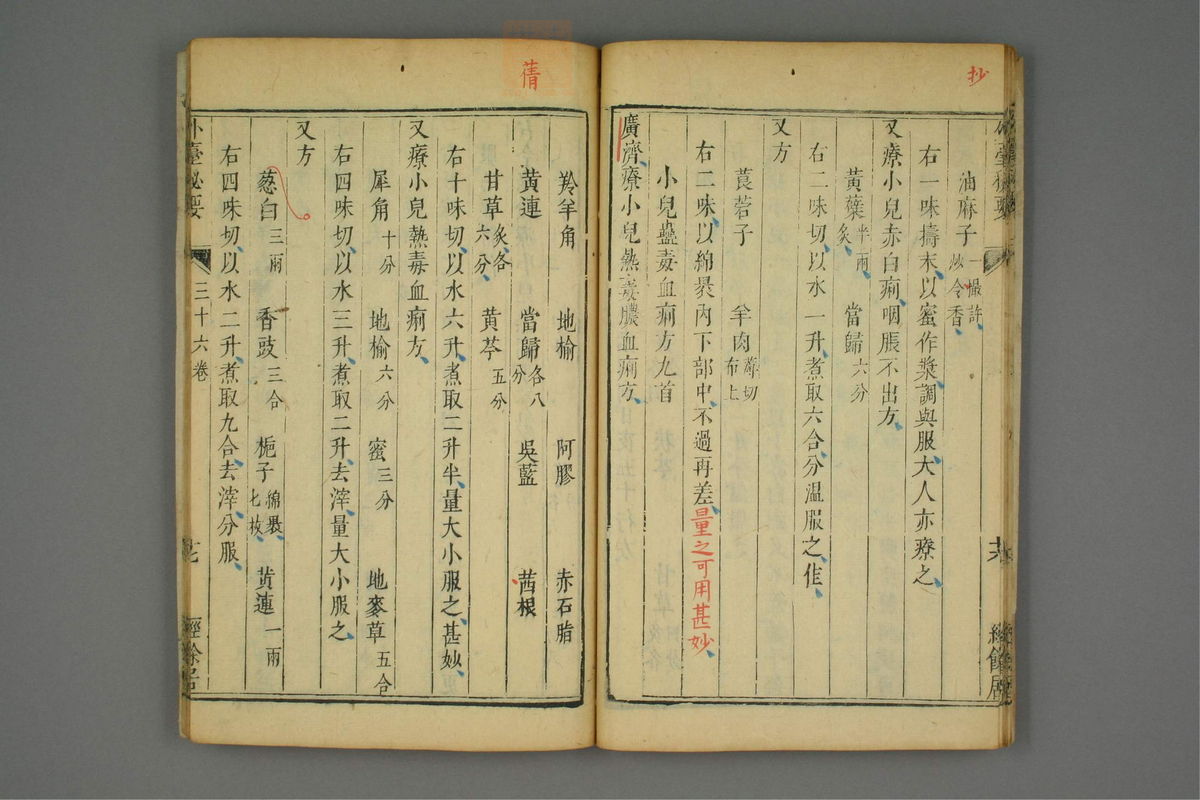 抄
油麻子一撮許炒令香
右一味擣末以蜜作漿調與服大人亦療之
又療小兒赤白痢咽脹不出方
黃蘗半兩炙 當歸六分
右二味切以水一升煮取六合分溫服之佳
又方
莨菪子 羊肉薄切布上
右二味以綿褁內下部中不過再差量之可用甚妙
小兒蠱毒血痢方九首
廣濟療小兒熱毒膿血痢方
蒨
羚羊角 地榆 阿膠 赤石脂
黃連 當歸各八分 吳藍 茜根
甘草炙各六分 黃芩五分
右十味切以水六升煮取二升半量大小服之甚妙
又療小兒熱毒血痢方
犀角十分 地榆六分 蜜三分 地麥草五合
右四味切以水三升煮取二升去滓量大小服之
又方
葱白三兩 香豉三合 梔子綿褁七枚 黃連一兩
右四味切以水二升煮取九合去滓分服
外臺秘要 三十六卷 經餘居